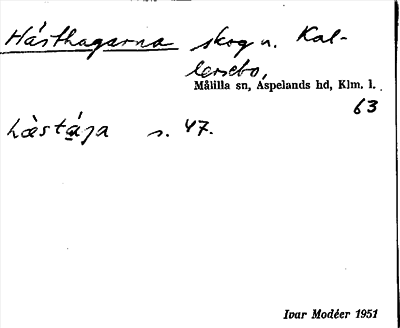 Hästhagarna skog u. Kal-
lersebo,
Målilla sn, Aspelands hd, Klm. l.
63
s. 47.
Ivar Modéer 1951